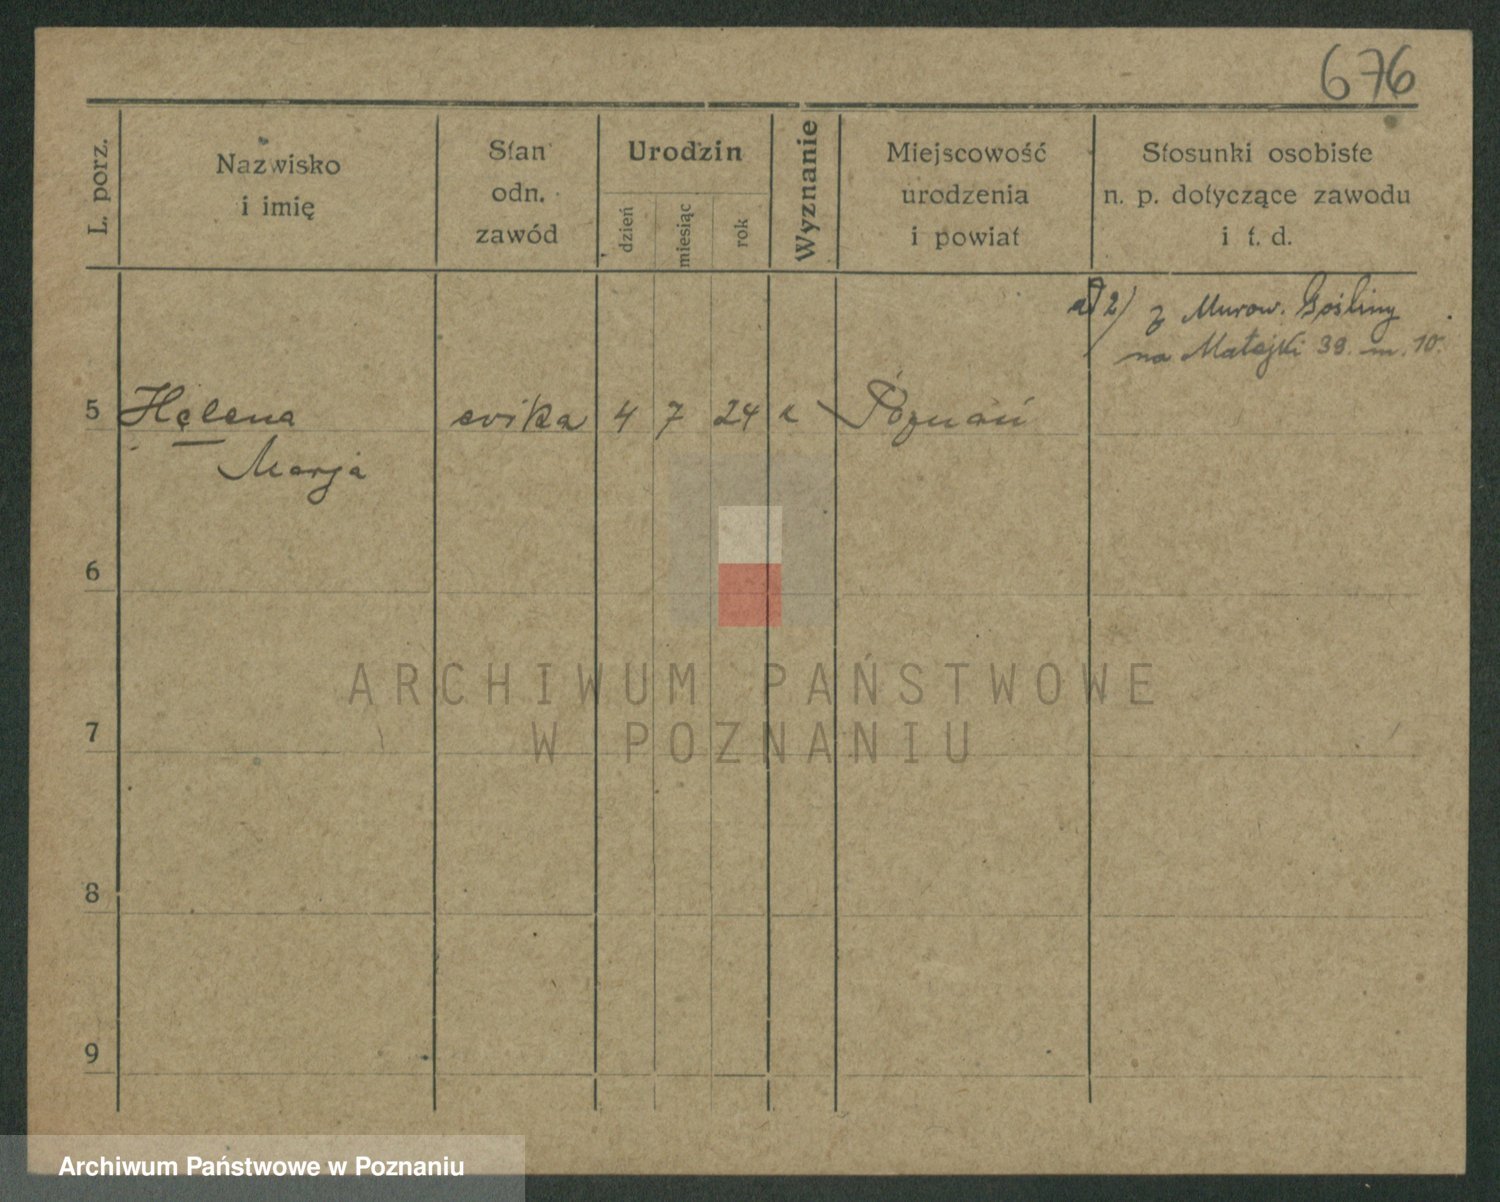 676
L. porz.
Nazwisko
i imię
Stan
odn.
zawód
Urodzin
dzień
miesiąc
rok
Wyznanie
Miejscowość
urodzenia
i powiat
Stosunki osobiste
n. p. dotyczące zawodu
i t. d.
ad 2) z Murow. Gośliny
na Matejki 39. m. 10.
5 Helena 4 7 24 k Poznań
Marja
6
7
8
9
ARCHIWUM PAŃSTWOWE
W POZNANIU
Archiwum Państwowe w Poznaniu